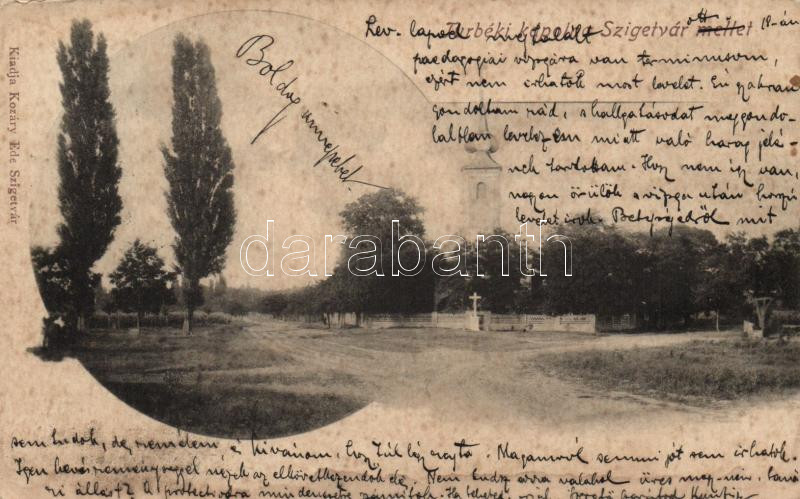 Turbéki kápolna Szigetvár mellet
Kiadja Kozáry Ede Szigetvár
Boldog ünnepeket
Lev. lapod ott 18-án
paedagogiai vizsgára van terminusom,
ezért nem írhatok most levelet. Én gyakran
gondoltam rád, s hallgatásodat meggondo-
latlan levelezésem miatt való harag jelé-
nek tartottam. Hogy nem így van,
nagyon örülök s vizsga után hosszú
levelet írok. Betegségedről mit
sem tudok, de remélem és kívánom, hogy túl légy rajta. Magamról semmi jót sem írhatok.
Igen kevés reménységgel nézek az elkövetkezendők elé. Nem tudsz arra valahol üres
állást? A
darabanth